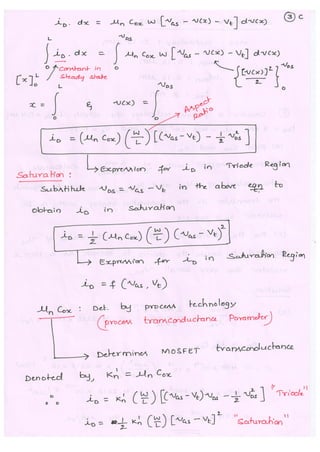 ③ C
i_D. dx = μn Cox W [ v_GS - v(x) - Vt ] dv(x)
L v_DS
∫ i_D. dx = ∫ μn Cox W [ v_GS - v(x) - Vt ] d v(x)
0 0
Constant in
Steady state
[x]₀ᴸ
{ [v(x)]² / 2 } v_DS 0
x = ∫₀ᴸ & v(x) = ∫₀^v_DS
Aspect
Ratio
i_D = (μn Cox) (W/L) [ (v_GS - Vt) - 1/2 v_DS² ]
↳ Expression for i_D in Triode Region
Saturation :
Substitute v_DS = v_GS - Vt in the above eqn to
obtain i_D in saturation
i_D = 1/2 (μn Cox) (W/L) (v_GS - Vt)²
↳ Expression for i_D in Saturation Region
i_D = f (v_GS, Vt)
μn Cox : Det. by process technology
(process transconductance Parameter)
↳ Determines MOSFET transconductance
Denoted by, Kn' = μn Cox
∴ i_D = Kn' (W/L) [ (v_GS - Vt) v_DS - 1/2 v_DS² ] "Triode"
i_D = 1/2 Kn' (W/L) [ v_GS - Vt ]² "Saturation"